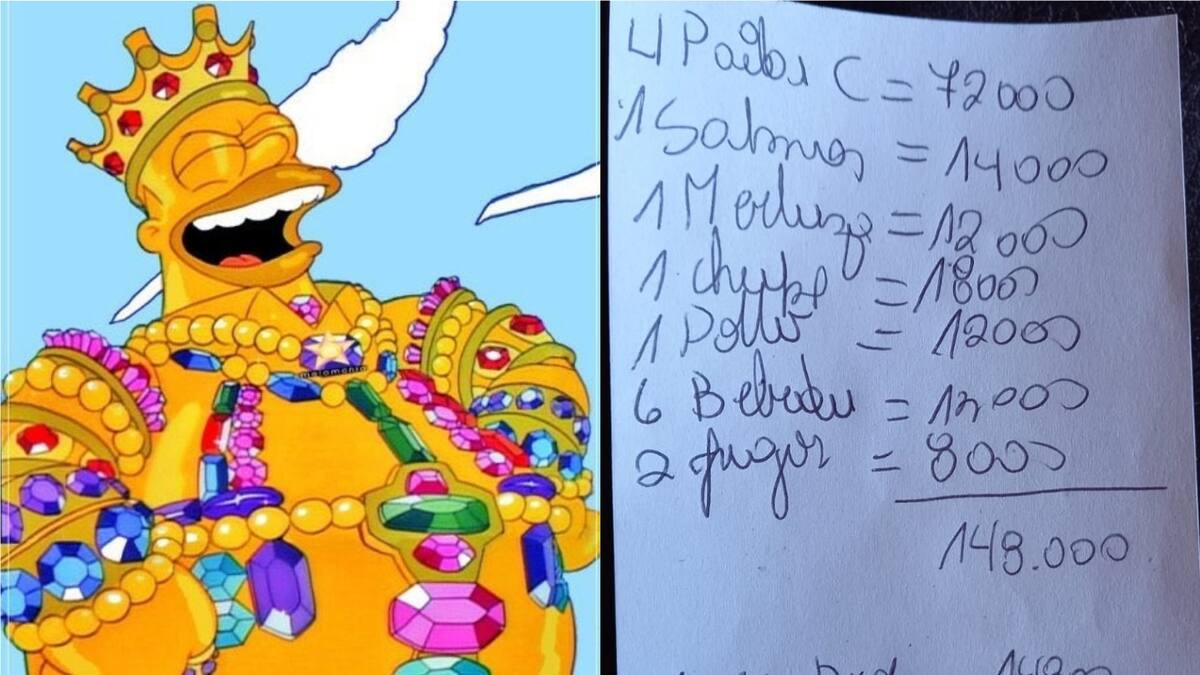 malomania
4 Pailas C = 72000
1 Salmon = 14000
1 Merluza = 12000
1 chupe = 18000
1 Pollo = 12000
6 Bebidas = 12000
2 jugos = 8000
148.000